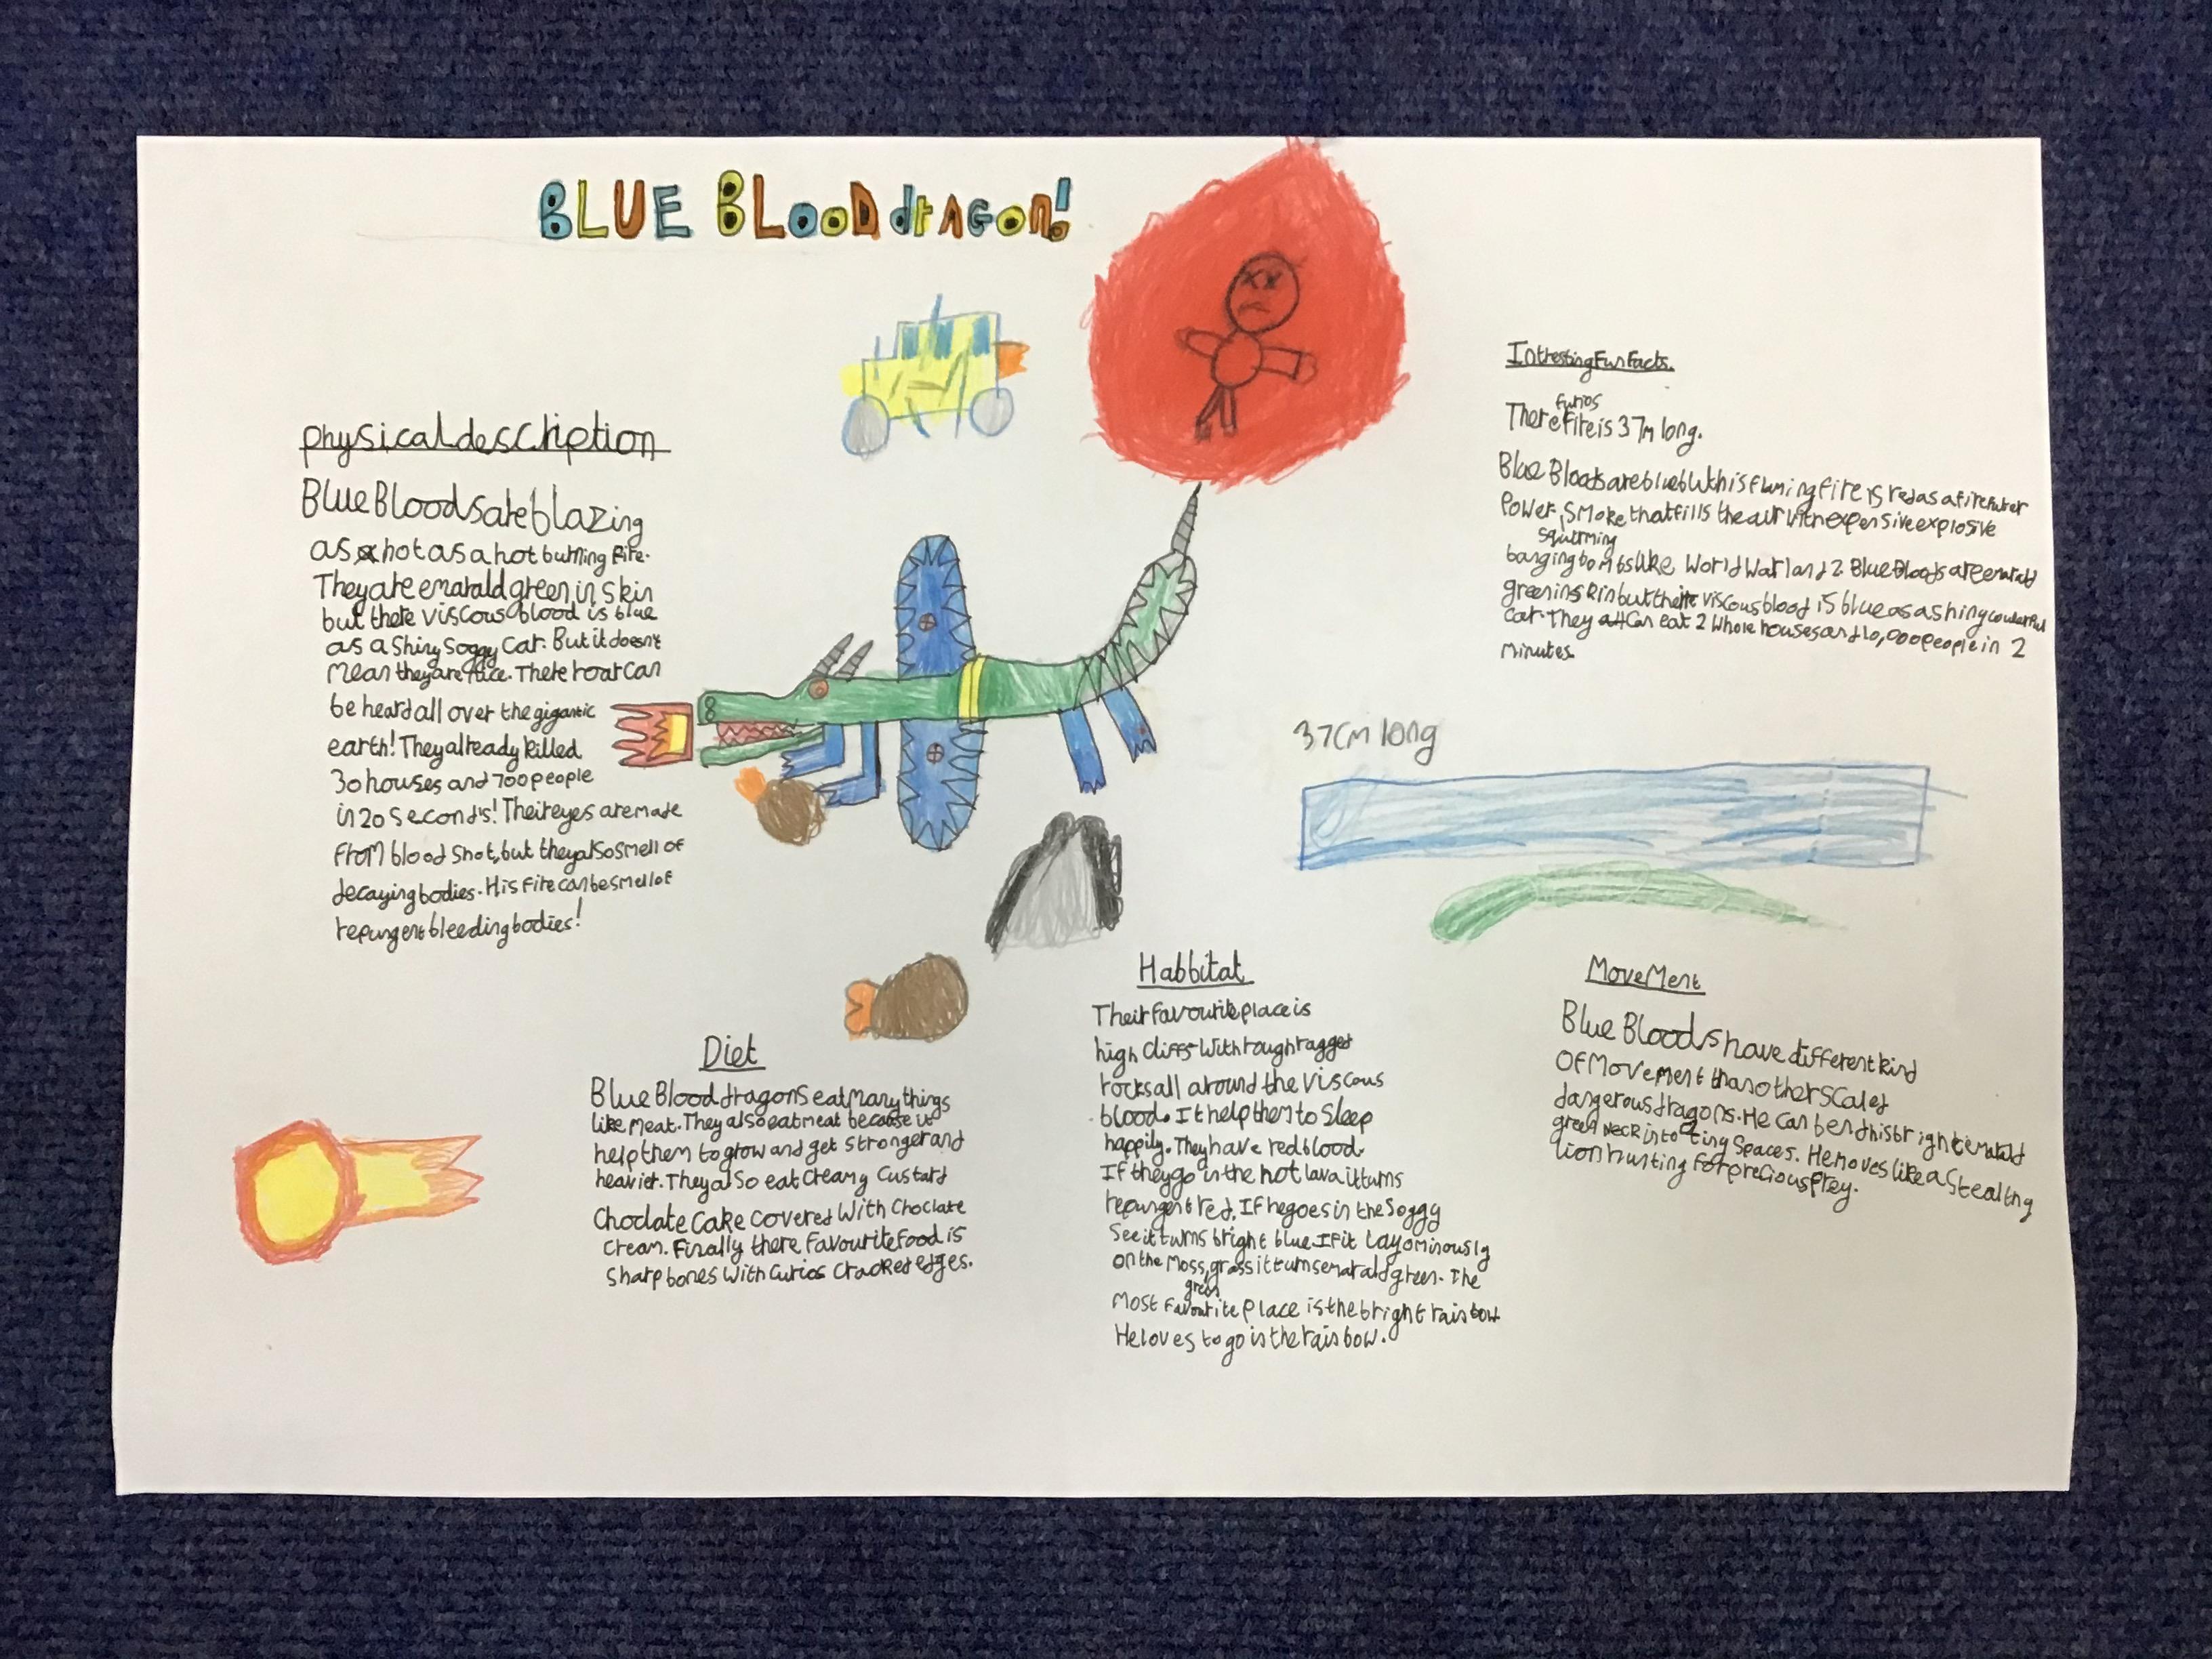 BLUE BLOOD drAGon!
physical description
Blue Bloods are blazing
as hot as a hot burning fire.
They are emarald green in skin
but there viscous blood is blue
as a Shiny Soggy Car. But it doesn't
Mean they are Nice. There roar can
be heard all over the gigantic
earth! They already killed
30 houses and 700 people
in 20 second's! Their eyes are made
from blood shot, but they also smell of
decaying bodies. His fire can be smell of
repungent bleeding bodies!
Diet
Blue Blood dragons eat Many things
like Meat. They also eat meat because it
help them to grow and get Stronger and
heavier. They also eat Creamy Custard
Choclate Cake Covered With Choclate
Cream. Finally there Favourite Food is
Sharp bones With Curios Cracked edges.
Habbitat
Their favourite place is
high Cliffs With rough ragged
rocks all around the Viscous
blood. It help them to Sleep
happily. They have red blood.
If they go in the hot lava it turns
repungent red. If he goes in the Soggy
See it turns bright blue. If it Lay ominously
on the Moss, grass it turns emarald green. The
grass
Most Favourite Place is the bright rainbow
He loves to go in the rainbow.
Intresting Fun Facts.
furios
There Fire is 37m long.
Blue Bloods are blue but his flaming fire is red as a fire
Power, Smoke that fills the air with expensive explosive
Squirming
banging bombs like World War 1 and 2. Blue Bloods are emarald
green in Skin but there viscous blood is blue as a shiny
car. They can eat 2 Whole houses and 10,000 people in 2
Minutes
37cm long
MoveMent
Blue Bloods have different kind
Of MoveMent than other Scaled
dangerous dragons. He Can bend his bright emarald
green neck into tiny Spaces. He moves like a Stealthy
Lion hunting for precious prey.